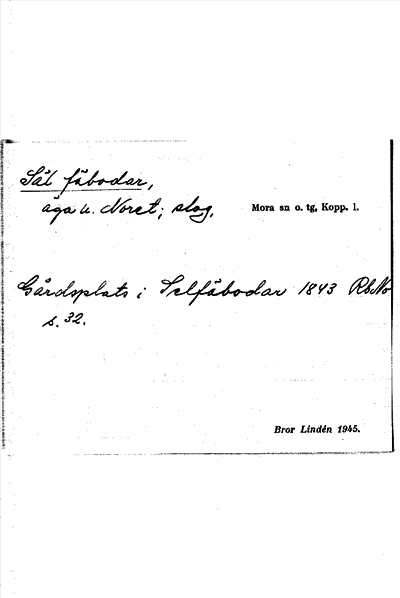 Sål fäbodar,
äga u. Noret; slog.
Mora sn o. tg, Kopp. l.
Gårdsplats i Selfäbodar 1843 RbNo
s. 32.
Bror Lindén 1945.